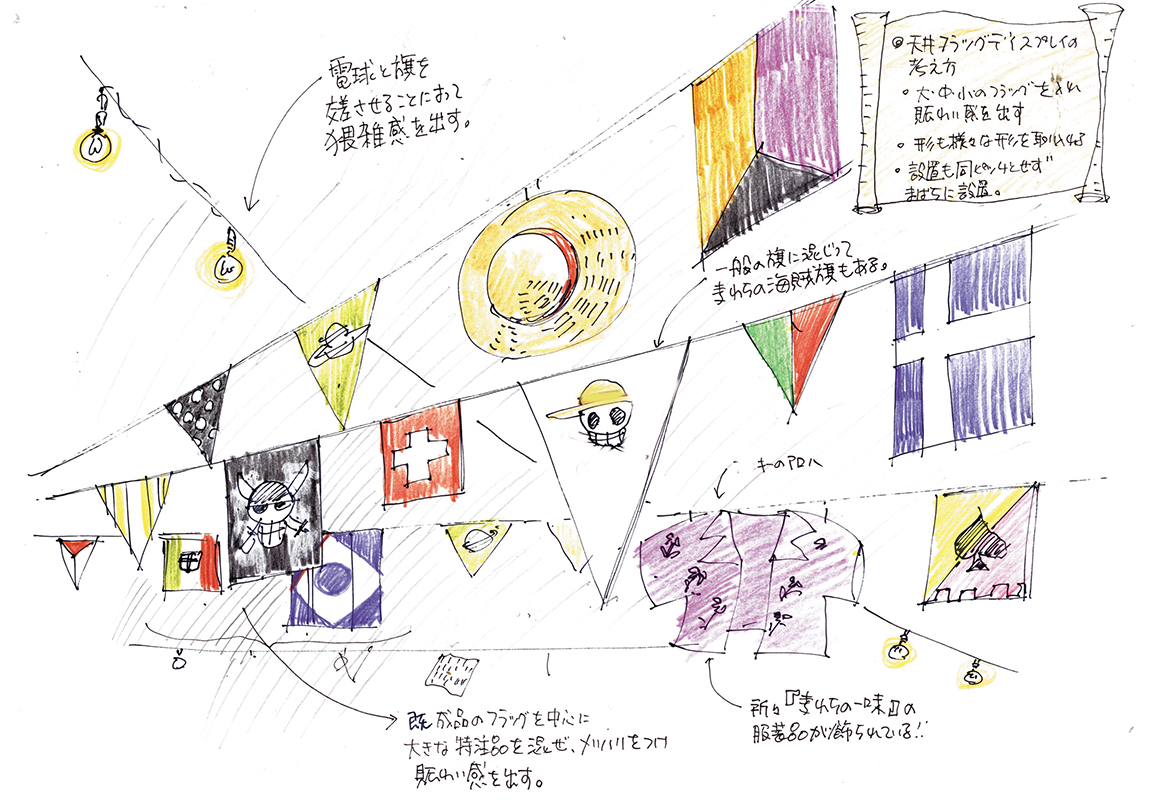 電球と旗を
交差させることによって
猥雑感を出す。
◎天井フラッグディスプレイの
考え方
・大・中・小のフラッグを入れ
賑わい感を出す
・形も様々な形を取り入れる
・設置も同ピッチとせず
まばらに設置。
一般の旗に混じって
麦わらの海賊旗もある。
キーのアロハ
既成品のフラッグを中心に
大きな特注品を混ぜ、メリハリをつけ
賑わい感を出す。
所々『麦わらの一味』の
服装品が飾られている!!